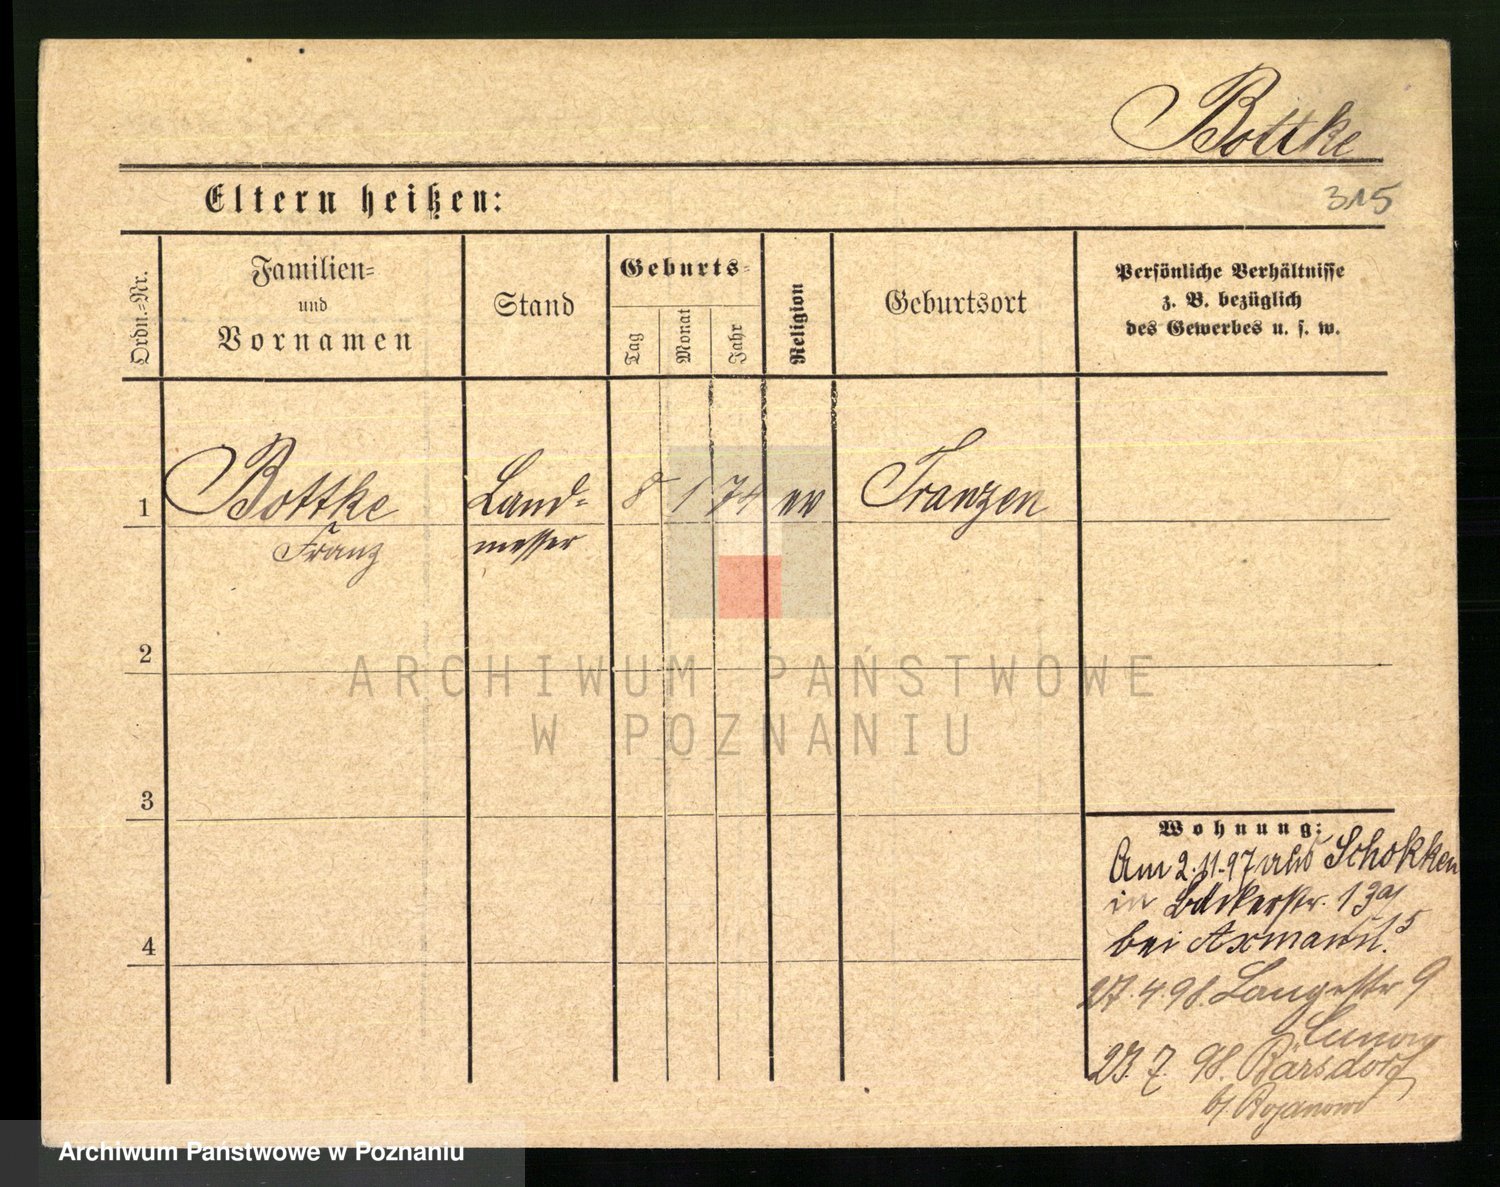 Bottke
Eltern heißen:
315
Ordn.=Nr.
Familien=
und
Vornamen
Stand
Geburts=
Tag
Monat
Jahr
Religion
Geburtsort
Persönliche Verhältnisse
z. B. bezüglich
des Gewerbes u. s. w.
1
Bottke
Franz
Land=
messer
8
1
74
ev
Franzen
2
ARCHIWUM PAŃSTWOWE
W POZNANIU
3
Wohnung:
Am 2.11.97 aus Schokken
in Bäckerstr. 13a
bei Axmann.
27.4.98. Langestr 9
23.7.98. Bärsdorf
b/ Bojanowo
4
Archiwum Państwowe w Poznaniu